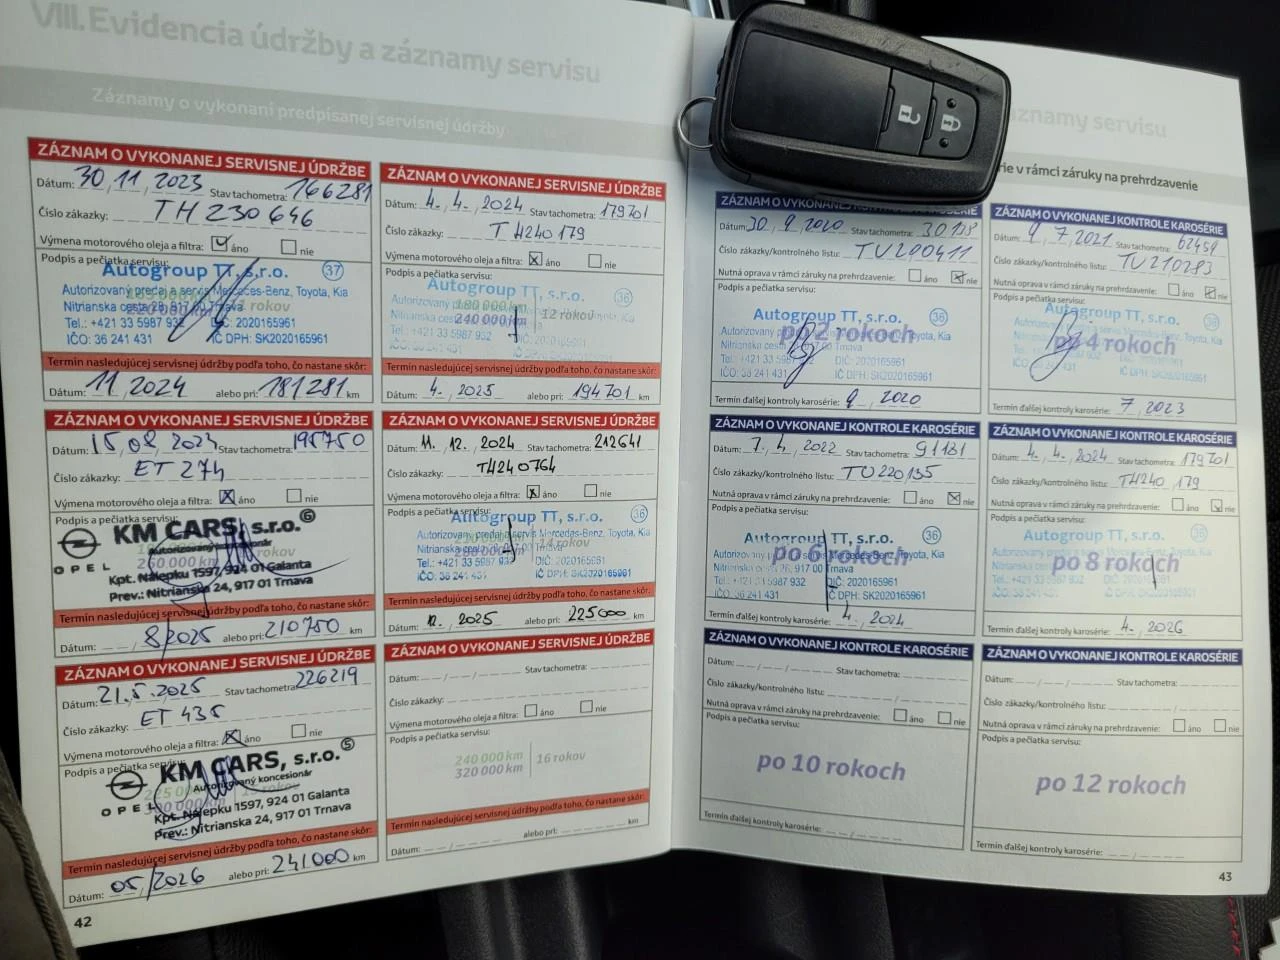 VIII. Evidencia údržby a záznamy servisu
Záznamy o vykonaní predpísanej servisnej údržby
ZÁZNAM O VYKONANEJ SERVISNEJ ÚDRŽBE
Dátum: 30, 11, 2023 Stav tachometra: 166281
Číslo zákazky: TH230646
Výmena motorového oleja a filtra: áno nie
Podpis a pečiatka servisu:
Autogroup TT, s.r.o. 37
Autorizovaný predaj a servis Mercedes-Benz, Toyota, Kia
Nitrianska cesta 917 01 Trnava
Tel.: +421 33 5987 932 DIČ: 2020165961
IČO: 36 241 431 IČ DPH: SK2020165961
220 000 km rokov
Termín nasledujúcej servisnej údržby podľa toho, čo nastane skôr:
Dátum: 11, 2024 alebo pri: 181281 km
ZÁZNAM O VYKONANEJ SERVISNEJ ÚDRŽBE
Dátum: 4. 4. 2024 Stav tachometra: 179701
Číslo zákazky: TH240179
Výmena motorového oleja a filtra: áno nie
Podpis a pečiatka servisu:
Autogroup TT, s.r.o. 36
180 000 km
240 000 km 12 rokov
Tel.: +421 33 5987 932 DIČ: 2020165961
IČO: 36 241 431 IČ DPH: SK2020165961
Termín nasledujúcej servisnej údržby podľa toho, čo nastane skôr:
Dátum: 4. 2025 alebo pri: 194701 km
ZÁZNAM O VYKONANEJ SERVISNEJ ÚDRŽBE
Dátum: 15, 08, 2024 Stav tachometra: 195750
Číslo zákazky: ET 274
Výmena motorového oleja a filtra: áno nie
Podpis a pečiatka servisu:
OPEL
KM CARS, s.r.o. 6
Autorizovaný koncesionár
260 000 km rokov
Kpt. Nálepku 1597, 924 01 Galanta
Prev.: Nitrianska 24, 917 01 Trnava
Termín nasledujúcej servisnej údržby podľa toho, čo nastane skôr:
Dátum: 8/2025 alebo pri: 210750 km
ZÁZNAM O VYKONANEJ SERVISNEJ ÚDRŽBE
Dátum: 11. 12. 2024 Stav tachometra: 212641
Číslo zákazky: TH240764
Výmena motorového oleja a filtra: áno nie
Podpis a pečiatka servisu:
Autogroup TT, s.r.o. 36
Autorizovaný predaj a servis Mercedes-Benz, Toyota, Kia
14 rokov
Tel.: +421 33 5987 932 DIČ: 2020165961
IČO: 36 241 431 IČ DPH: SK2020165961
Termín nasledujúcej servisnej údržby podľa toho, čo nastane skôr:
Dátum: 12. 2025 alebo pri: 225000 km
ZÁZNAM O VYKONANEJ SERVISNEJ ÚDRŽBE
Dátum: 21.5.2025 Stav tachometra: 226219
Číslo zákazky: ET 435
Výmena motorového oleja a filtra: áno nie
Podpis a pečiatka servisu:
OPEL
KM CARS, s.r.o. 5
Autorizovaný koncesionár
225 000 km
300 000 km 15 rokov
Kpt. Nálepku 1597, 924 01 Galanta
Prev.: Nitrianska 24, 917 01 Trnava
Termín nasledujúcej servisnej údržby podľa toho, čo nastane skôr:
Dátum: 05/2026 alebo pri: 241000 km
ZÁZNAM O VYKONANEJ SERVISNEJ ÚDRŽBE
Dátum: Stav tachometra:
Číslo zákazky:
Výmena motorového oleja a filtra: áno nie
Podpis a pečiatka servisu:
240 000 km
320 000 km 16 rokov
Termín nasledujúcej servisnej údržby podľa toho, čo nastane skôr:
Dátum: alebo pri: km
42
záznamy servisu
v rámci záruky na prehrdzavenie
KONTROLE KAROSÉRIE
Dátum: 30, 9, 2020 Stav tachometra: 30138
Číslo zákazky/kontrolného listu: TU200411
Nutná oprava v rámci záruky na prehrdzavenie: áno nie
Podpis a pečiatka servisu:
Autogroup TT, s.r.o. 36
po 2 rokoch
Tel.: +421 33 5987 932 DIČ: 2020165961
IČO: 36 241 431 IČ DPH: SK2020165961
Termín ďalšej kontroly karosérie: 9, 2020
ZÁZNAM O VYKONANEJ KONTROLE KAROSÉRIE
Dátum: 9, 7, 2021 Stav tachometra: 62454
Číslo zákazky/kontrolného listu: TU210283
Nutná oprava v rámci záruky na prehrdzavenie: áno nie
Podpis a pečiatka servisu:
Autogroup TT, s.r.o. 36
po 4 rokoch
DIČ: 2020165961
IČ DPH: SK2020165961
Termín ďalšej kontroly karosérie: 7, 2023
ZÁZNAM O VYKONANEJ KONTROLE KAROSÉRIE
Dátum: 7. 4. 2022 Stav tachometra: 91181
Číslo zákazky/kontrolného listu: TU220135
Nutná oprava v rámci záruky na prehrdzavenie: áno nie
Podpis a pečiatka servisu:
Autogroup TT, s.r.o. 36
po 6 rokoch
Nitrianska cesta 26, 917 00 Trnava
Tel.: +421 33 5987 932 DIČ: 2020165961
IČO: 36 241 431 IČ DPH: SK2020165961
Termín ďalšej kontroly karosérie: 4, 2024
ZÁZNAM O VYKONANEJ KONTROLE KAROSÉRIE
Dátum: 4. 4. 2024 Stav tachometra: 179701
Číslo zákazky/kontrolného listu: TH240179
Nutná oprava v rámci záruky na prehrdzavenie: áno nie
Podpis a pečiatka servisu:
Autogroup TT, s.r.o. 36
po 8 rokoch
IČO: 36 241 431 IČ DPH: SK2020165961
Termín ďalšej kontroly karosérie: 4. 2026
ZÁZNAM O VYKONANEJ KONTROLE KAROSÉRIE
Dátum: Stav tachometra:
Číslo zákazky/kontrolného listu:
Nutná oprava v rámci záruky na prehrdzavenie: áno nie
Podpis a pečiatka servisu:
po 10 rokoch
Termín ďalšej kontroly karosérie:
ZÁZNAM O VYKONANEJ KONTROLE KAROSÉRIE
Dátum: Stav tachometra:
Číslo zákazky/kontrolného listu:
Nutná oprava v rámci záruky na prehrdzavenie: áno nie
Podpis a pečiatka servisu:
po 12 rokoch
Termín ďalšej kontroly karosérie:
43